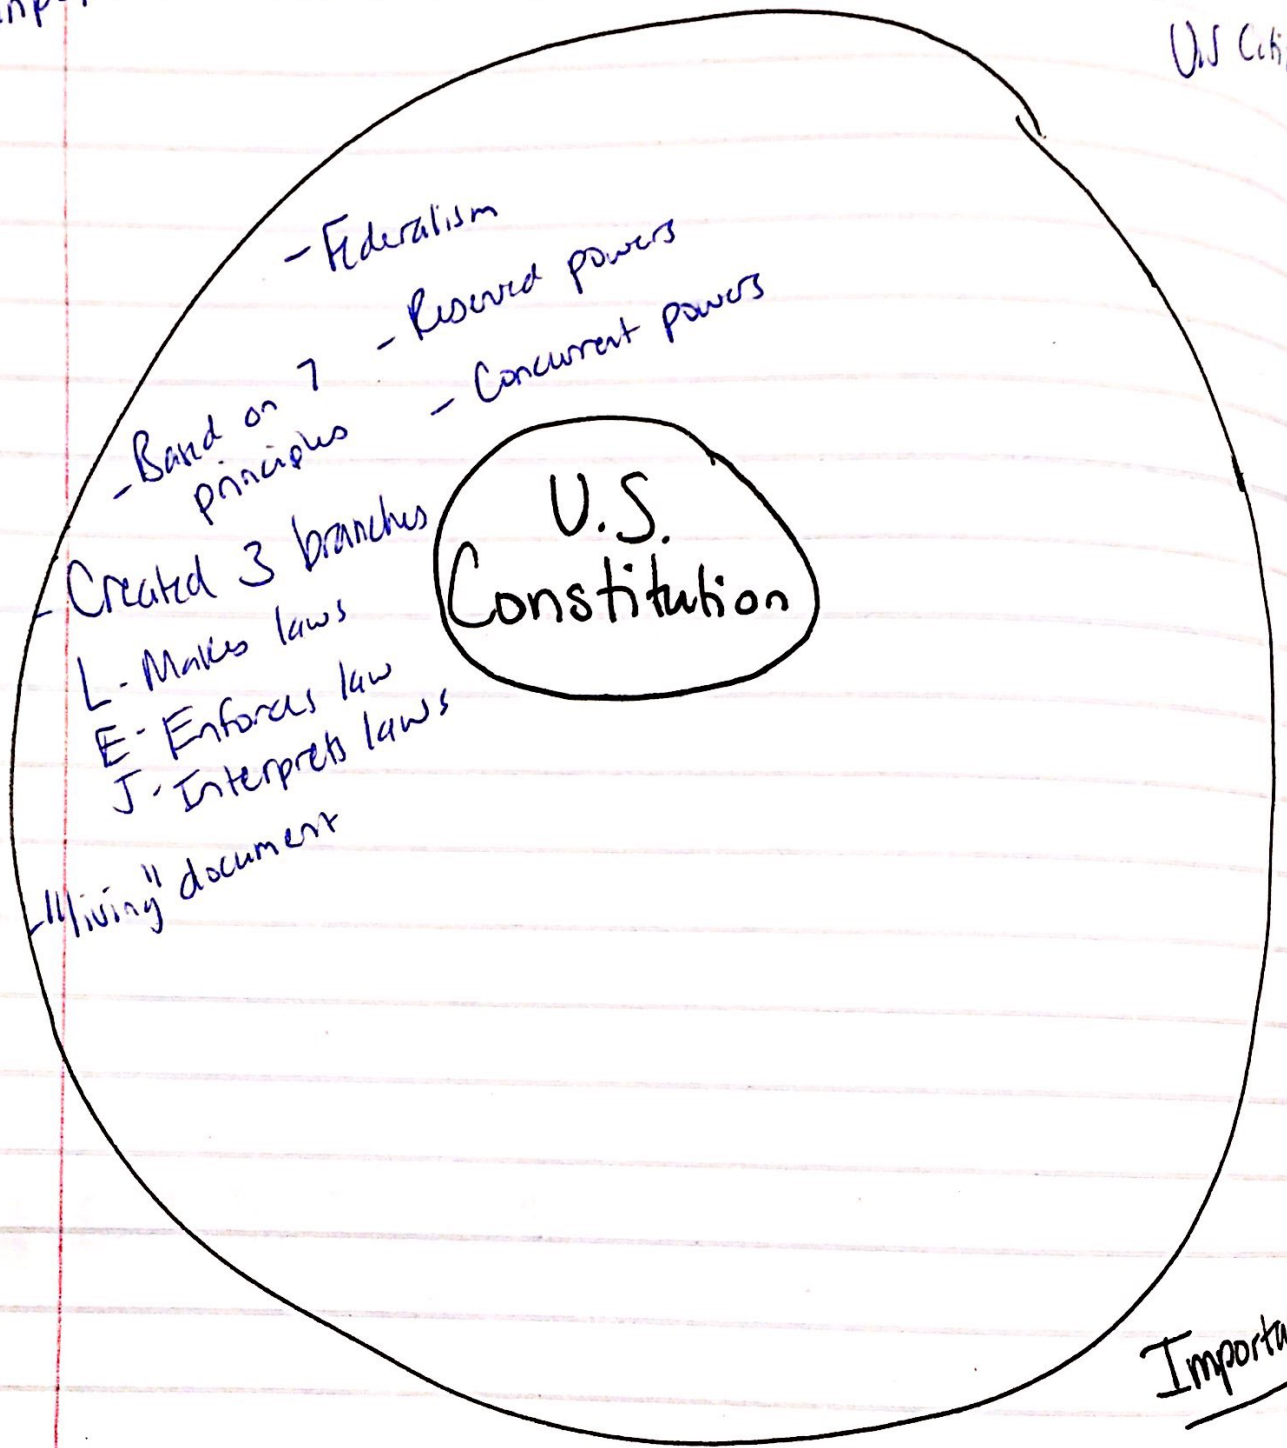 U.S
- Federalism
- Reserved powers
- Concurrent powers
- Based on 7
principles
- Created 3 branches
L - Makes laws
E - Enforces law
J - Interprets laws
- "living" document
U.S.
Constitution